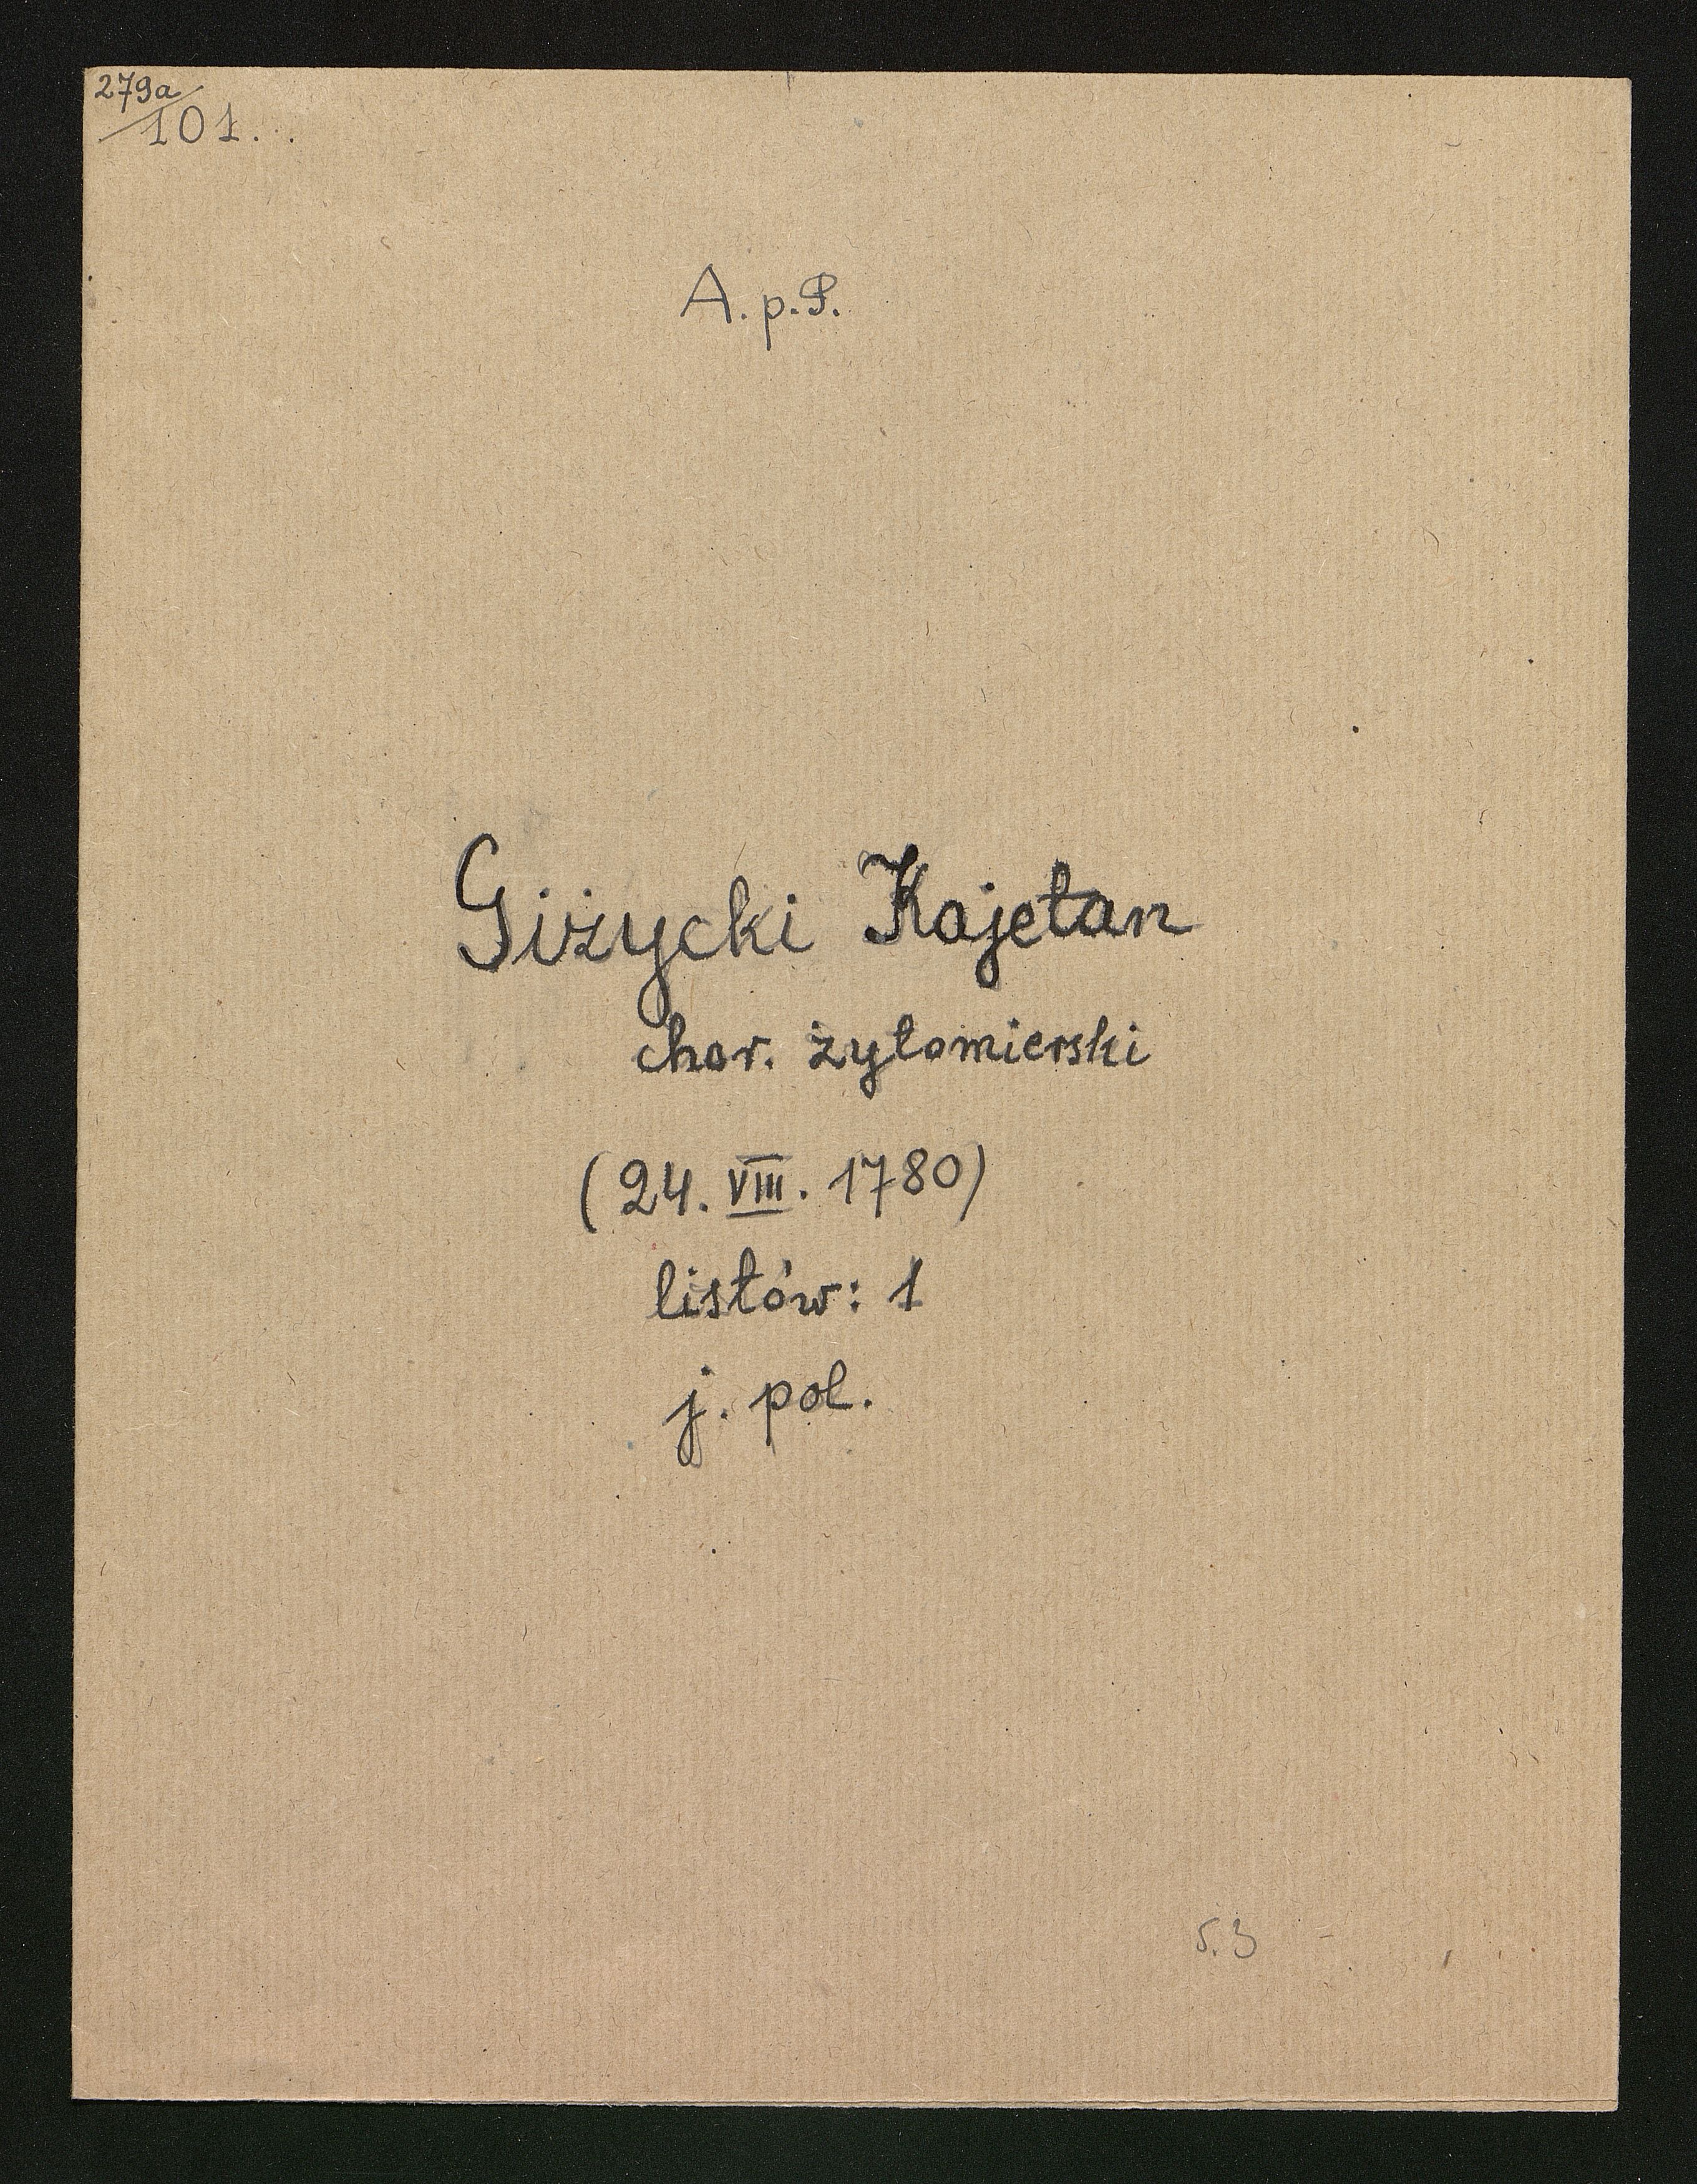 279a
101.
A. p. P.
Giżycki Kajetan
chor. żytomierski
(24. VIII. 1780)
listów: 1
j. pol.
s. 3